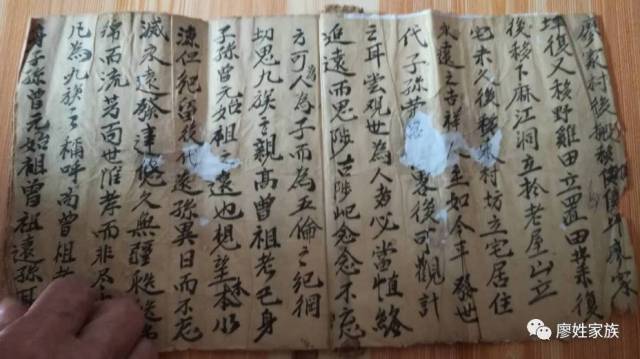 廖家村後搬移
坪復又移野雞田立置田業復
後移下麻江洞立於老屋山立
宅未久後移米村坊立宅居住
永遠之吉祥人至如今年發世
代子孫榮 後可觀計
之耳嘗观世為人者必當慎終
追遠而思陟古陟屺念念不忘
方可為人為子而為五倫之纪綱
切思九族之親高曾祖考己身
子孫曾元始祖之遠也想望木本水
源仁纪留後代遠孫異日而不忘
滅永遠發達悠久無疆
綿而流芳百世惟孝而非尽
凡為九族之稱呼高曾祖考
身子孫曾元始祖曾祖遠孫耳
廖姓家族